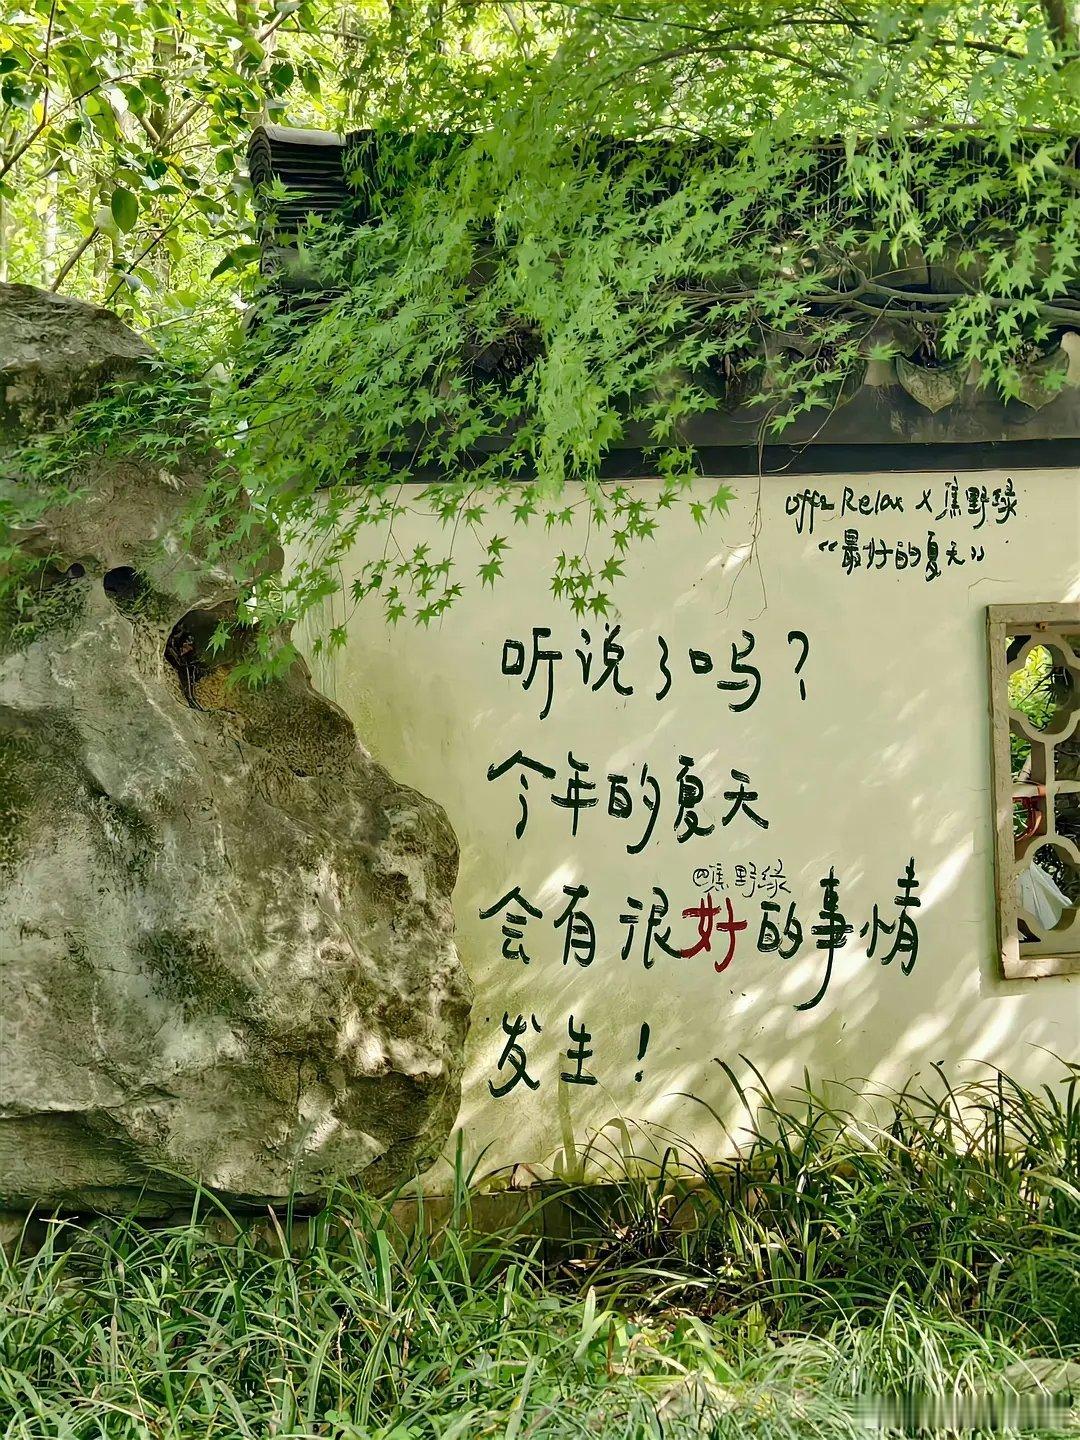 offe Relax X 焦野绿
“最好的夏天”
听说了吗？
今年的夏天
@焦野绿
会有很好的事情
发生！